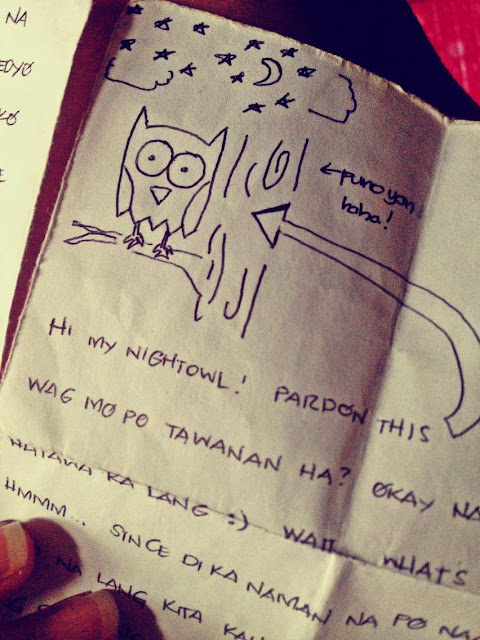 NA
KO
←PUNO YAN
haha!
HI MY NIGHTOWL! PARDON THIS
WAG MO PO TAWANAN HA? OKAY NA
NATAWA KA LANG :) WAIT... WHAT'S
HMMM... SINCE DI KA NAMAN NA PO
NA LANG KITA